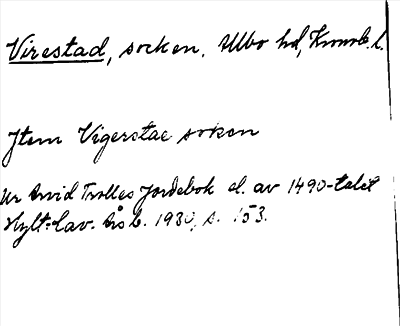 Virestad, socken. Allbo hd, Kronob. l.
Item Vigerstae soken
Ur Arvid Trolles Jordebok el. av 1490-talet
Hylt-Cav. Årsb. 1930, s. 153.